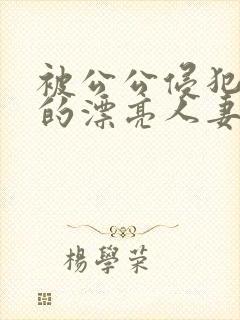 被公公侵犯
的漂亮人妻
楊學荣